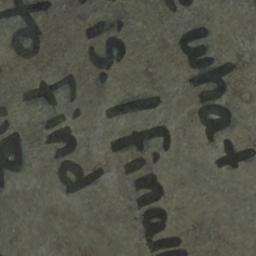 what
is. I finall
to find